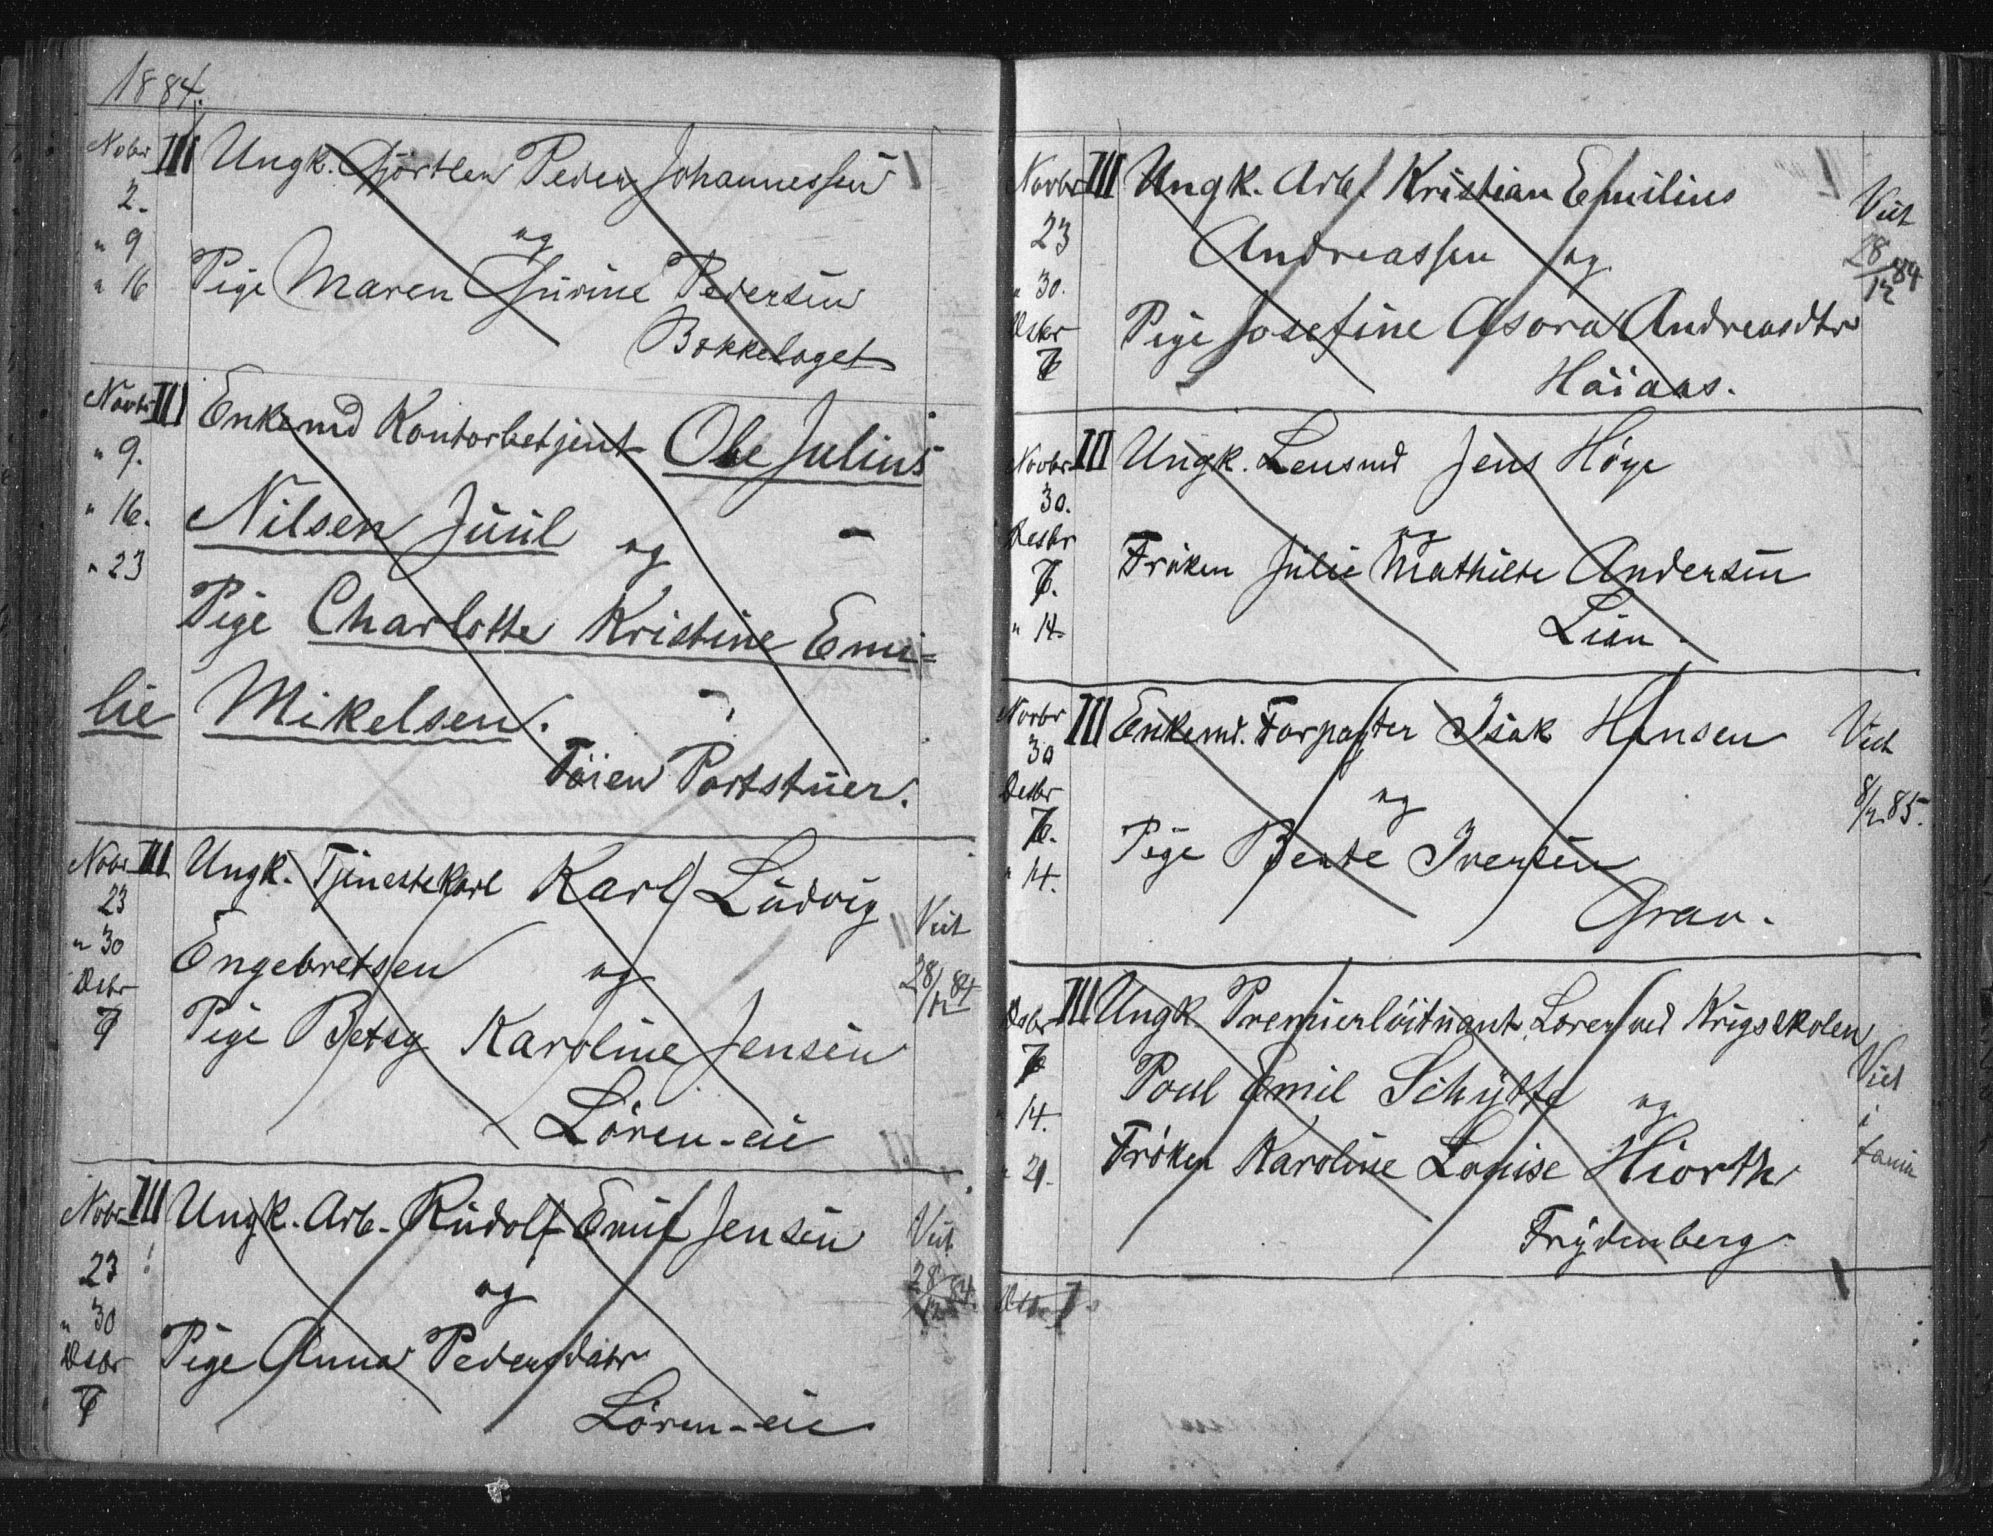 1884.
Nobr III Ungk. Gjörtler Peder Johannessen
2. og
" 9 Pige Maren Gurine Pedersen
" 16 Bakkelaget
Novbr III Enkemd Kontorbetjent Ole Julius
" 9. Nilsen Juul og
" 16. Pige Charlotte Kristine Emi=
" 23
lie Mikelsen.
Töien Portstuer.
Nobr III Ungk. Tjenestekarl Karl Ludvig
23 Engebretsen og Viet
" 30 Pige Betsy Karoline Jensen 28/12 84
Desbr Lören-eie
7
Nobr III Ungk. Arb. Rudolf Emil Jensen Viet
23 og 28/12 84.
" 30 Pige Anna Pedersdatr
Desbr Lören-eie
7
Novbr III Ungk. Arb. Kristian Emilius Viet
23 Andreassen og 28/12 84
" 30. Pige Josefine Asora Andreasdtr
Desbr Höiaas.
7
Novbr III Ungk. Lensmd Jens Höye
30. og
Desbr Fröken Julie Mathilte Andersen
7. Lian.
" 14.
Novbr III Enkemd. Forpagter Isak Hansen Viet
30 og 8/2 85.
Desbr Pige Berte Iversen
7. Grav.
" 14.
Desbr III Ungk. Premierlöitnant, Lærer ved Krigsskolen
7 Poul Emil Schytte og Viet
" 14. Fröken Karoline Louise Hiorth i
" 21. Frydenberg
Desbr 7